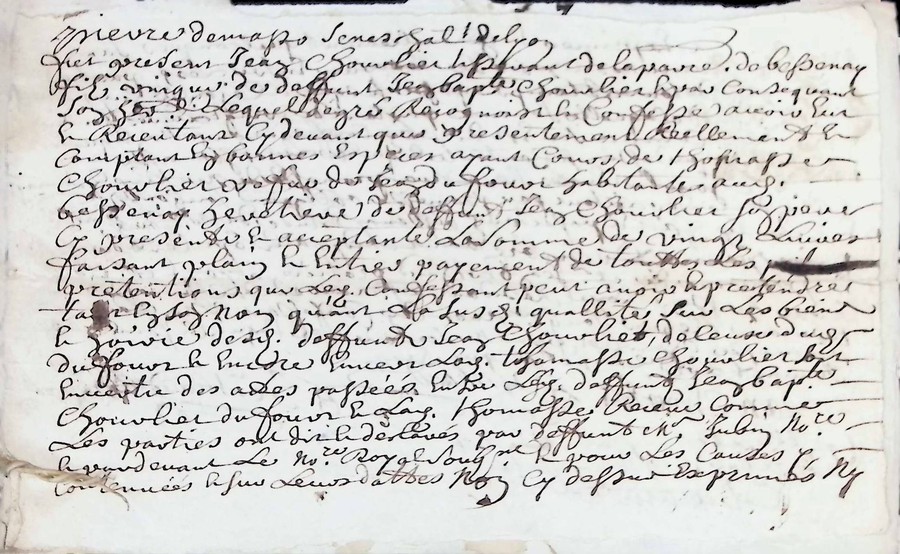 pierre demasso seneschal delyon
fut present Jean Chouvlier tisserant de la parre. de bessenay
fils unique de deffunt Jeanbapte Chouvlier et par Consequant
Son herit. Lequel degré Recognoist et Confesse avoir eut
et Receu tant Cydevant que presentement Reellement et
Comptant En bonnes Especes ayant Cours, de thomasse
Chouvlier vefve de Jean du four habitantes aud.
bessenay heretiere de deffunt Jean Chouvlier Son pere
Cy presente et acceptante La Somme de vingt Livres
faisant plain et Entier payement de touttes Les
pretentions que Led. Confessant peut avoir et pretendre
tant En Son Nom qu'ant La Susd. quallité Sur Les biens
et hoirie dud. deffunt Jean Chouvlier, de Leusse dud.
du four et Encore Envers Lad. thomasse Chouvlier Soit
En vertu des actes passées Entre Led. deffunt Jeanbapte
Chouvlier du four et Lad. thomasse Receus Comme
Les parties ont dit et declarés par deffunt Me Jubin Nore
et pardevant Le Nore Royal Soubsné et pour Les Causes y
Contenuées et Sur Leurs dattes Non Cy dessus Exprimés Ny